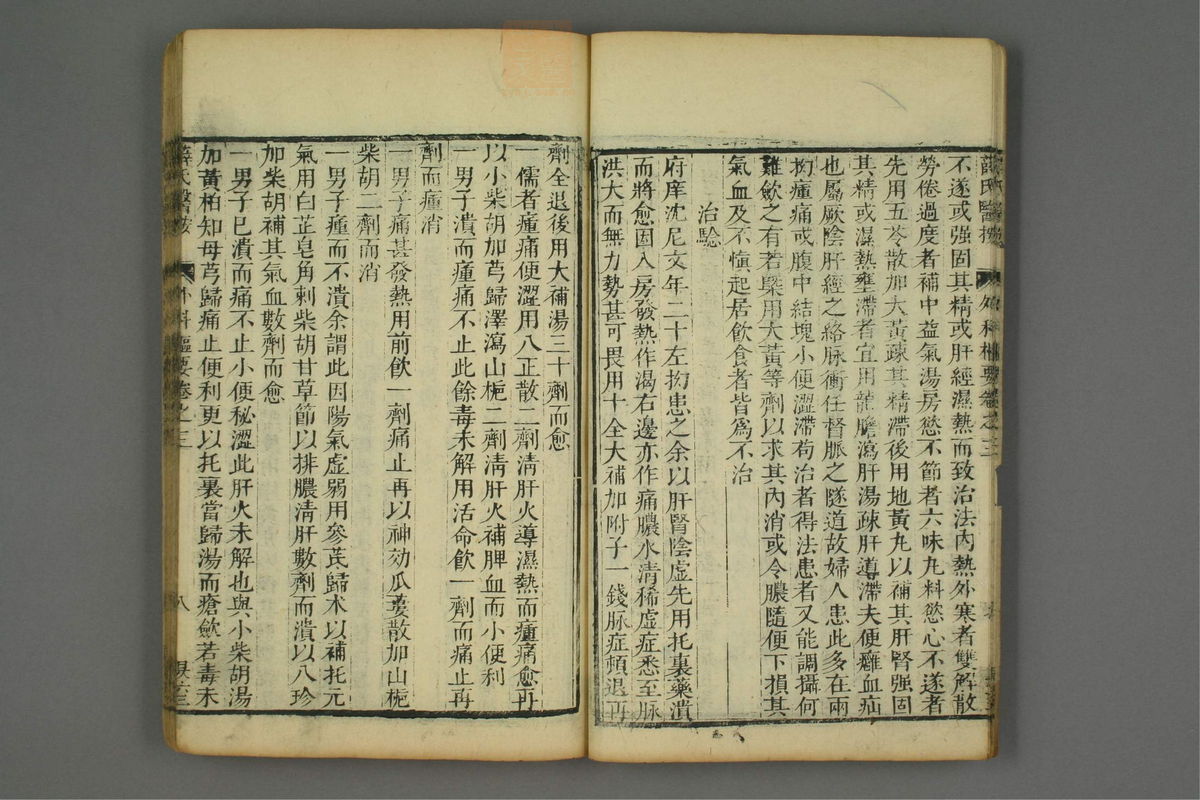 不遂或强固其精或肝經濕熱而致治法内熱外寒者雙解散
勞倦過度者補中益氣湯房慾不節者六味丸料慾心不遂者
先用五苓散加大黃疎其精滯後用地黃丸以補其肝腎强固
其精或濕熱壅滯者宜用龍膽瀉肝湯疎肝導滯夫便癰血疝
也屬厥陰肝經之絡脉衝任督脉之隧道故婦人患此多在兩
拗瘇痛或腹中結塊小便澀滯苟治者得法患者又能調攝何
難歛之有若槩用大黃等劑以求其内消或令膿隨便下損其
氣血及不愼起居飲食者皆爲不治
治驗
府庠沈尼文年二十左拗患之余以肝腎陰虛先用托裏藥潰
而將愈因入房發熱作渴右邊亦作痛膿水清稀虛症悉至脉
洪大而無力勢甚可畏用十全大補加附子一錢脉症頓退再
劑全退後用大補湯三十劑而愈
一儒者瘇痛便澀用八正散二劑清肝火導濕熱而瘇痛愈再
以小柴胡加芎歸澤瀉山梔二劑清肝火補脾血而小便利
一男子潰而瘇痛不止此餘毒未解用活命飲一劑而痛止再
劑而瘇消
一男子痛甚發熱用前飲一劑痛止再以神効瓜蔞散加山梔
柴胡二劑而消
一男子瘇而不潰余謂此因陽氣虛弱用參芪歸朮以補托元
氣用白芷皂角刺柴胡甘草節以排膿清肝數劑而潰以八珍
加柴胡補其氣血數劑而愈
一男子已潰而痛不止小便秘澀此肝火未解也與小柴胡湯
加黃柏知母芎歸痛止便利更以托裏當歸湯而瘡歛若毒未
薛氏醫按 外科樞要卷之三 八